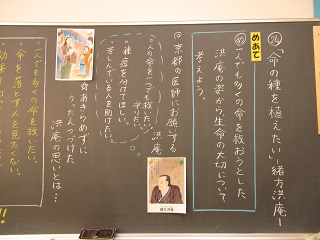 ㉔「命の種を植えたい」ー緒方洪庵ー
めあて
一人でも多くの命を救おうとした
洪庵の姿から生命の大切さについて
考えよう。
◎京都の医師にお願いする
洪庵
・人の命を一つでも救いたい。
守りたい。
・種痘を分けてほしい。
・苦しんでいる人を助けたい。
☆あきらめずに、
うったえつづけた
洪庵の思いとは…
・一人でも多くの命を救いたい。
・命を落とす人を見たくない。